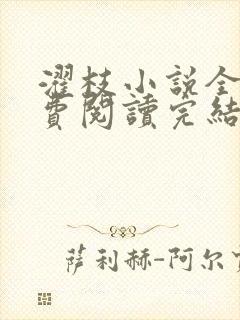 濯枝小说全
費閱讀完結
萨利赫-阿尔